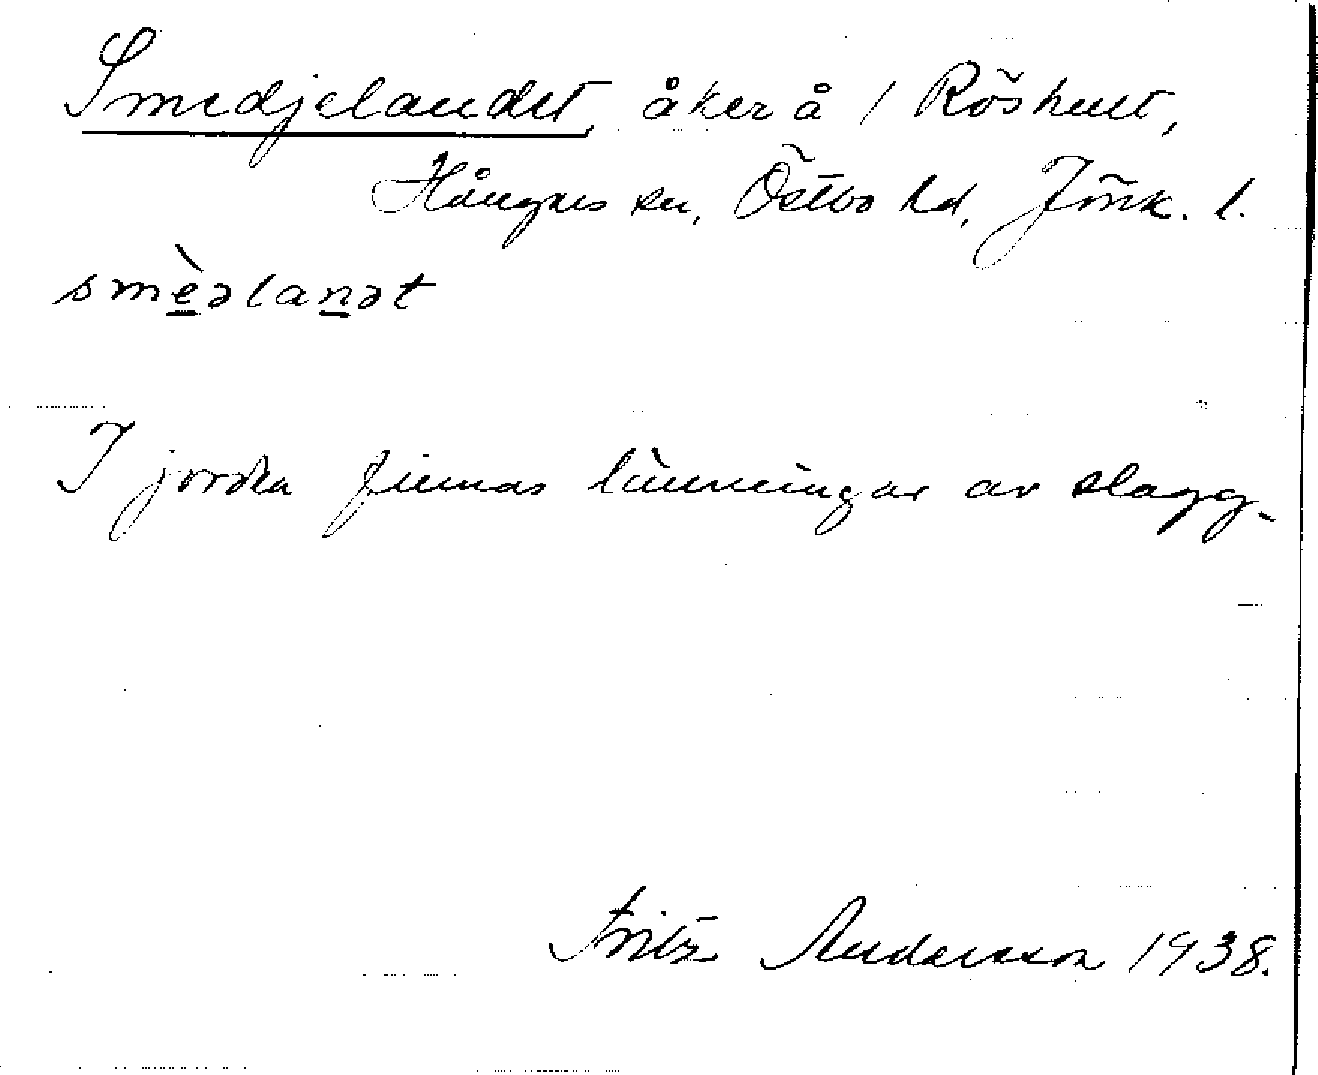 Smedjelandet, åker å 1 Röshult,
Hångers sn, Östbo hd, Jönk. l.
smèəlanət
I jorden finnas lämningar av slagg.
Fritz Andersson 1938.